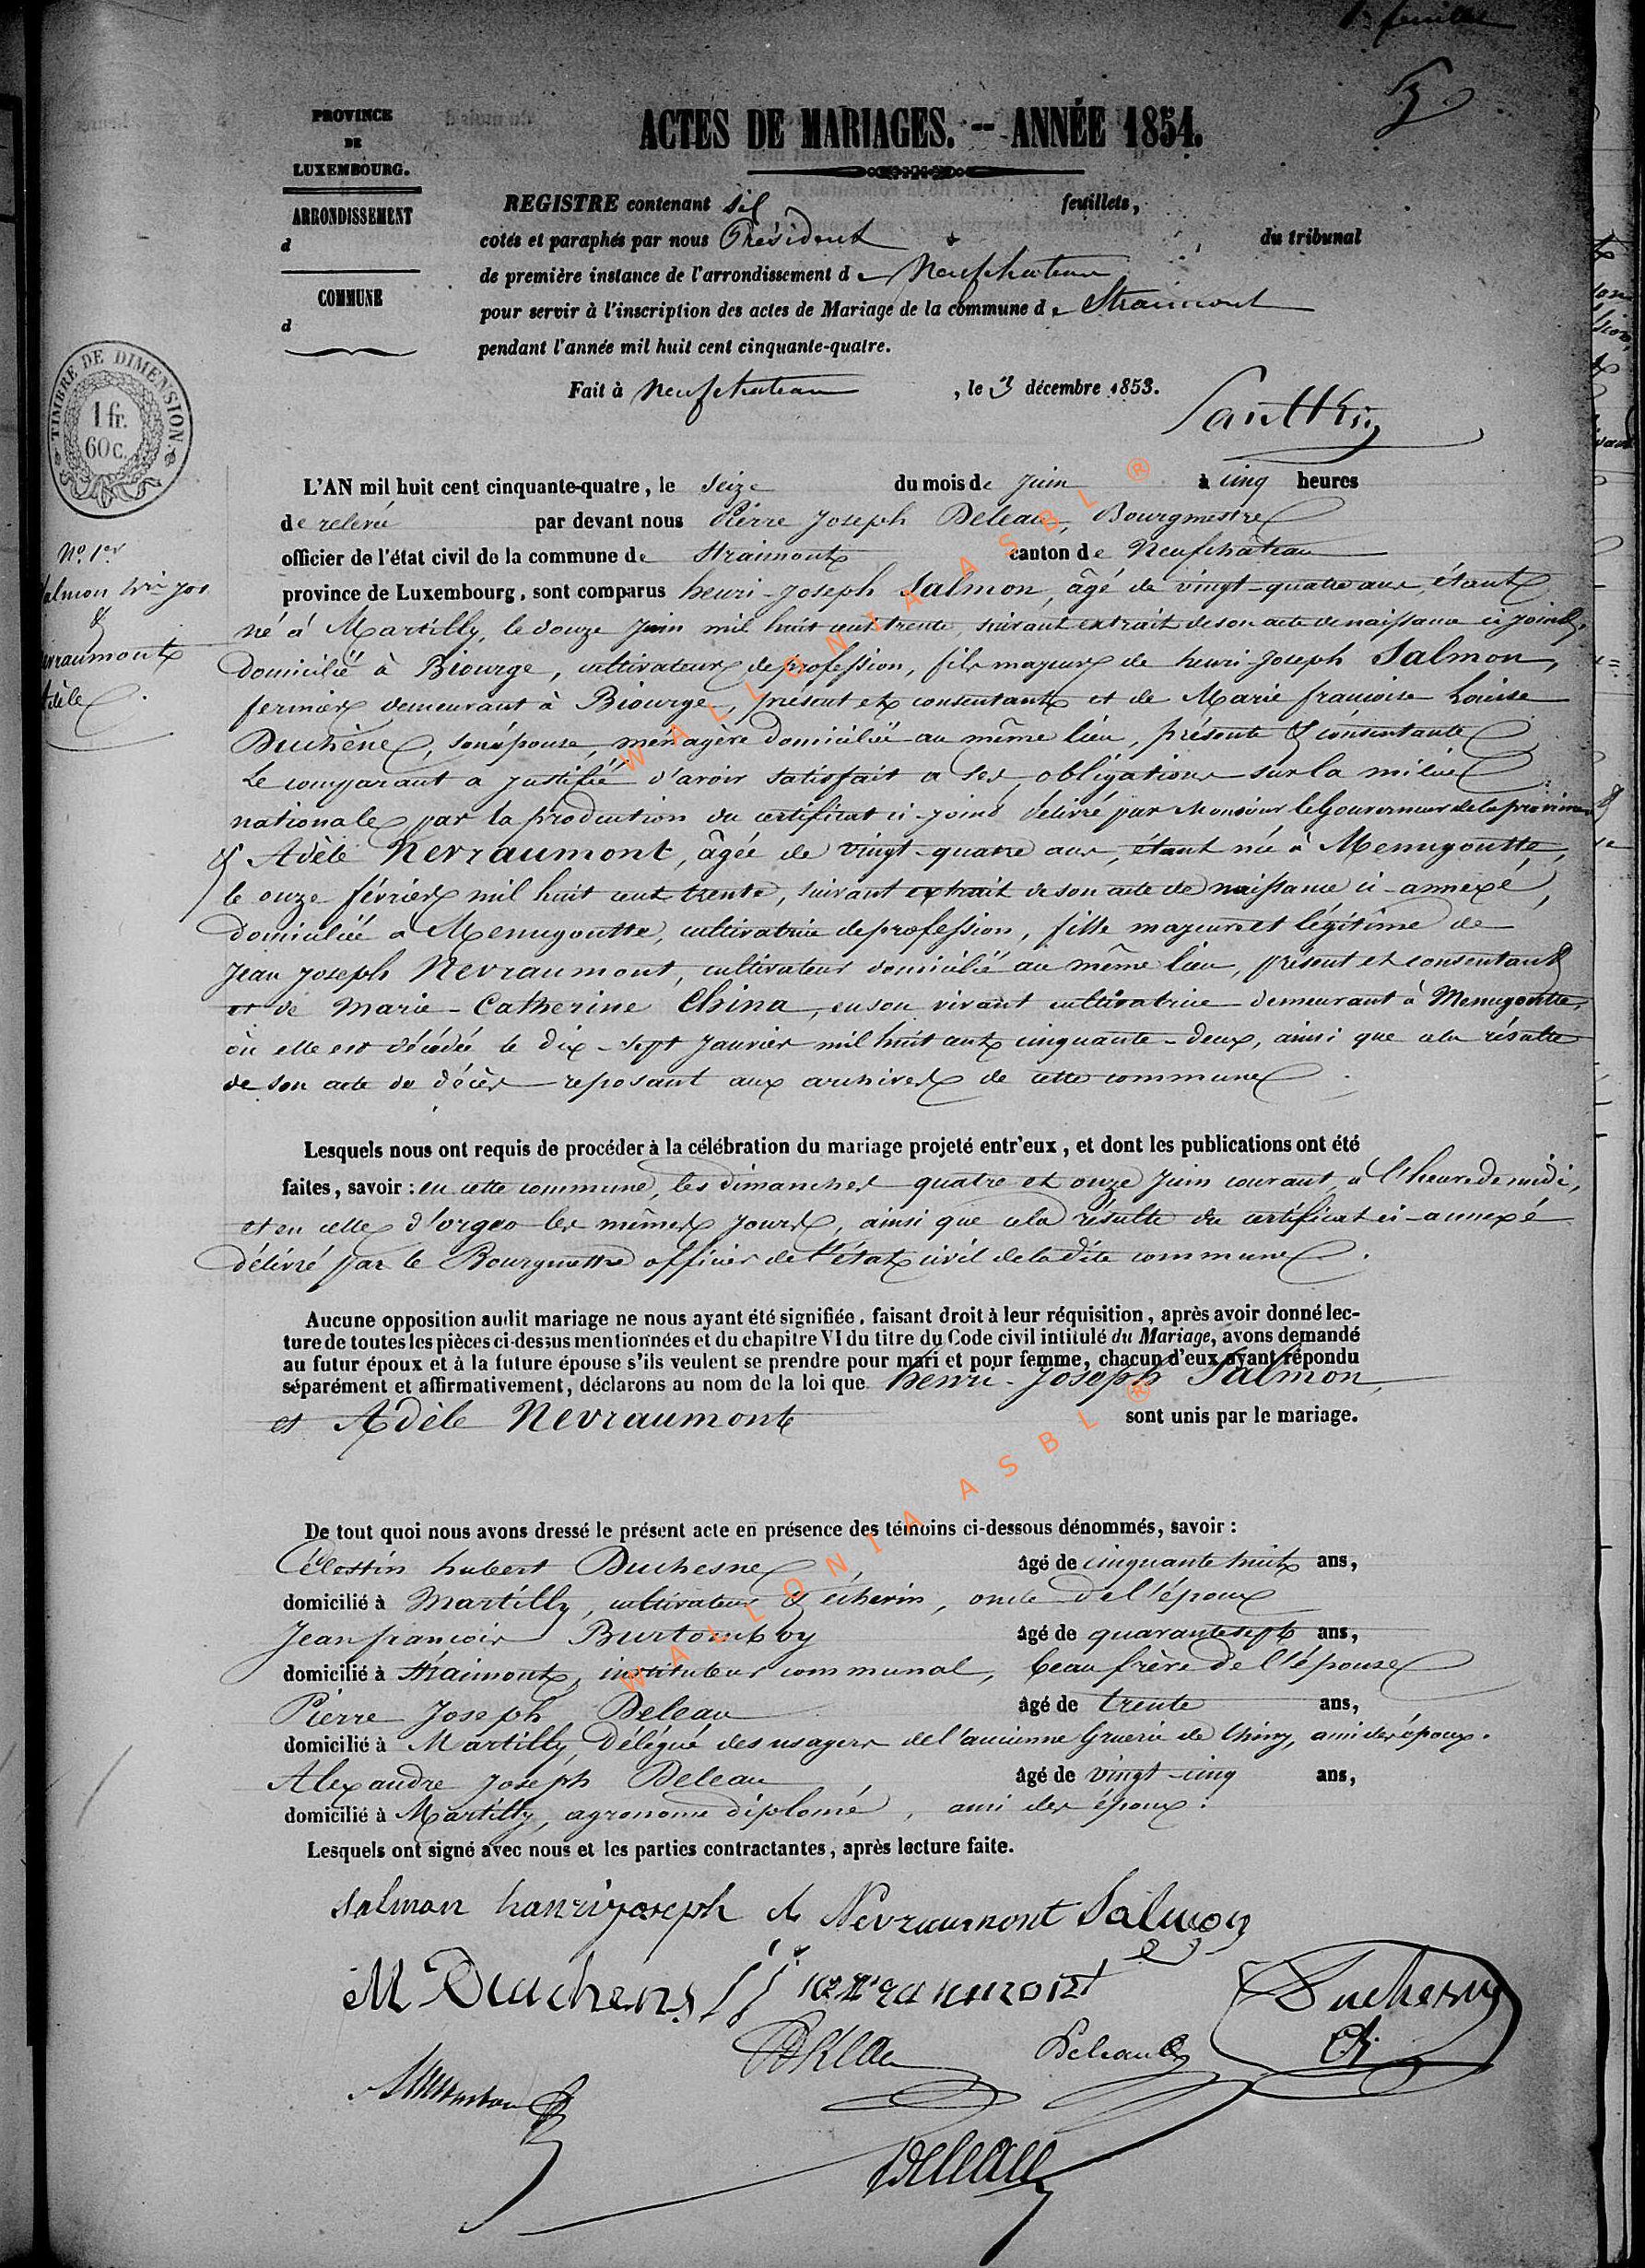 1er feuillet
PROVINCE
DE
LUXEMBOURG.
ARRONDISSEMENT
d
COMMUNE
d
ACTES DE MARIAGES. -- ANNÉE 1854.
REGISTRE contenant six feuillets,
cotés et paraphés par nous Président du tribunal
de première instance de l'arrondissement de Neufchateau
pour servir à l'inscription des actes de Mariage de la commune de Straimont
pendant l'année mil huit cent cinquante-quatre.
Fait à Neufchateau, le 3 décembre 1853.
TIMBRE DE DIMENSION.
1 fr.
60 c.
No. 1er
Salmon hri jos
&
Nevraumont
Adèle
L'AN mil huit cent cinquante-quatre, le seize du mois de juin à cinq heures
de relevée par devant nous Pierre Joseph Deleau, Bourgmestre
officier de l'état civil de la commune de Straimont canton de Neufchateau
province de Luxembourg, sont comparus henri-Joseph Salmon, âgé de vingt-quatre ans, étant
né à Martilly, le douze Juin mil huit cent trente, suivant extrait de son acte de naissance ci joint,
domicilié à Biourge, cultivateur de profession, fils majeur de henri-Joseph Salmon,
fermier demeurant à Biourge, présent et consentant et de Marie françoise Louise
Duchène, son épouse, ménagère domiciliée au même lieu, présente & consentante
Le comparant a justifié d'avoir satisfait à ses obligations sur la milice
nationale par la production du certificat ci-joint délivré par Monsieur le Gouverneur de la province
& Adèle Nevraumont, âgée de vingt-quatre ans, étant née à Menugoutte,
le onze février mil huit cent trente, suivant extrait de son acte de naissance ci-annexé,
domiciliée à Menugoutte, cultivatrice de profession, fille majeure et légitime de
Jean Joseph Nevraumont, cultivateur domicilié au même lieu, présent et consentant
et de Marie-Catherine China, en son vivant cultivatrice demeurant à Menugoutte,
où elle est décédée le dix-sept Janvier mil huit cent cinquante-deux, ainsi que cela résulte
de son acte de décès reposant aux archives de cette commune.
Lesquels nous ont requis de procéder à la célébration du mariage projeté entr'eux, et dont les publications ont été
faites, savoir : en cette commune, les dimanches quatre et onze Juin courant, à l'heure de midi,
et en celle d'orgeo les mêmes jours, ainsi que cela résulte du certificat ci-annexé
délivré par le Bourgmestre officier de l'état civil de la dite commune.
Aucune opposition audit mariage ne nous ayant été signifiée, faisant droit à leur réquisition, après avoir donné lec-
ture de toutes les pièces ci-dessus mentionnées et du chapitre VI du titre du Code civil intitulé du Mariage, avons demandé
au futur époux et à la future épouse s'ils veulent se prendre pour mari et pour femme, chacun d'eux ayant répondu
séparément et affirmativement, déclarons au nom de la loi que henri-Joseph Salmon,
et Adèle Nevraumont sont unis par le mariage.
De tout quoi nous avons dressé le présent acte en présence des témoins ci-dessous dénommés, savoir :
Célestin hubert Duchesne, âgé de cinquante huit ans,
domicilié à Martilly, cultivateur & échevin, oncle de l'époux
Jean françois Burtomboy âgé de quarante sept ans,
domicilié à Straimont, instituteur communal, beau frère de l'épouse
Pierre Joseph Deleau âgé de trente ans,
domicilié à Martilly, Délégué des usagers de l'ancienne Gruerie de Chiny, ami des époux.
Alexandre Joseph Deleau, âgé de vingt-cinq ans,
domicilié à Martilly, agronome diplomé, ami des époux.
Lesquels ont signé avec nous et les parties contractantes, après lecture faite.
Salmon hanri joseph A Nevraumont Salmon
M Duchene J J nevraumont Duchesne
Deleau Deleau
Deleau
WALLONIA ASBL ®
WALLONIA ASBL ®